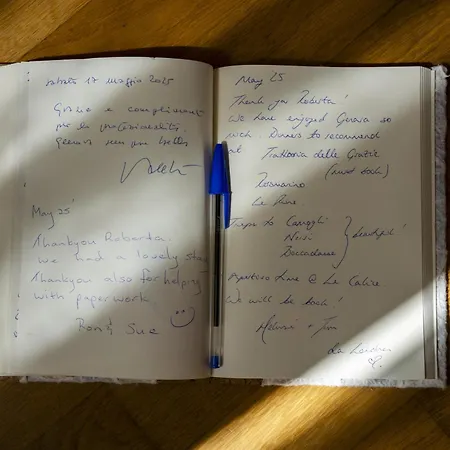 Sabato 17 maggio 2025
Grazie e complimenti
per la
Genova
May 25'
Thankyou Roberta.
We had a lovely stay
Thankyou also for helping
with paperwork.
Ron & Sue
May 25
Thank you Roberta!
We have enjoyed Genova so
much. Dinners to recommend
at Trattoria delle Grazie
(must book)
Rosmarino
Le Rune
Trips to Camogli
Nervi
Boccadasse
beautiful!
Aperitivo Time @ Le Calice
We will be back!
+ Tim